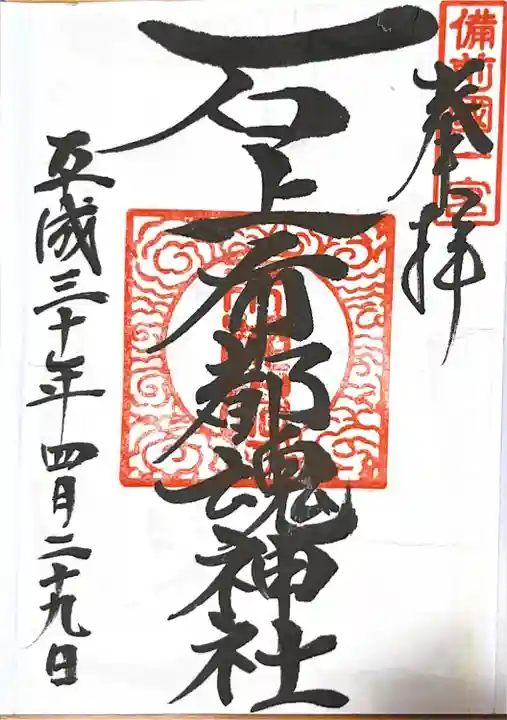 備前國一宮
奉拝
石上布都魂神社
平成三十年四月二十九日